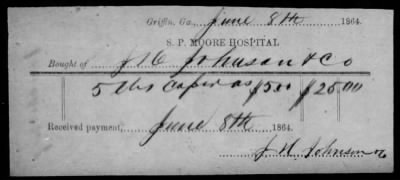 Griffin, Ga., June 8th 1864.
S. P. MOORE HOSPITAL
Bought of J H Johnson & Co
5 lbs as $5.00 $25.00
Received payment, June 8th 1864.
J H Johnson